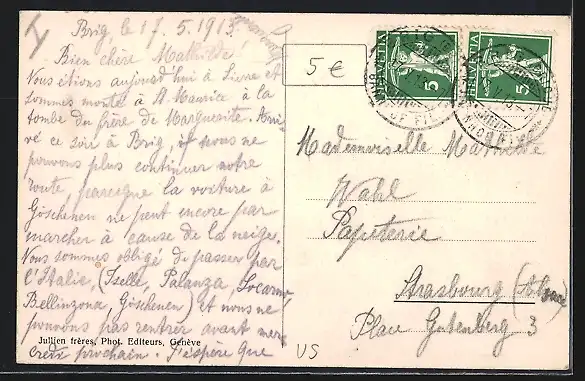 Brig, le 17. 5. 1913.
Bien chère Mathilde!
Nous étions aujourd'hui à Sierre et
sommes monté à St. Maurice à la
tombe du frère de Marguerite. Arri-
vé ce soir à Brig, nous ne
pouvons plus continuer notre
route parceque la voiture à
Göschenen ne peut encore pas
marcher à cause de la neige.
Nous sommes obligé de passer par
l'Italie, (Iselle, Palanza, Locarno,
Bellinzona, Göschenen) et nous ne
pouvons pas rentrer avant mer-
credi prochain. J'espère que
Jullien frères, Phot. Editeurs, Genève
5 €
HELVETIA
5
HELVETIA
5
Mademoiselle Mathilde
Wahl
Papeterie
Strasbourg (Alsace)
Place Gutenberg 3
US